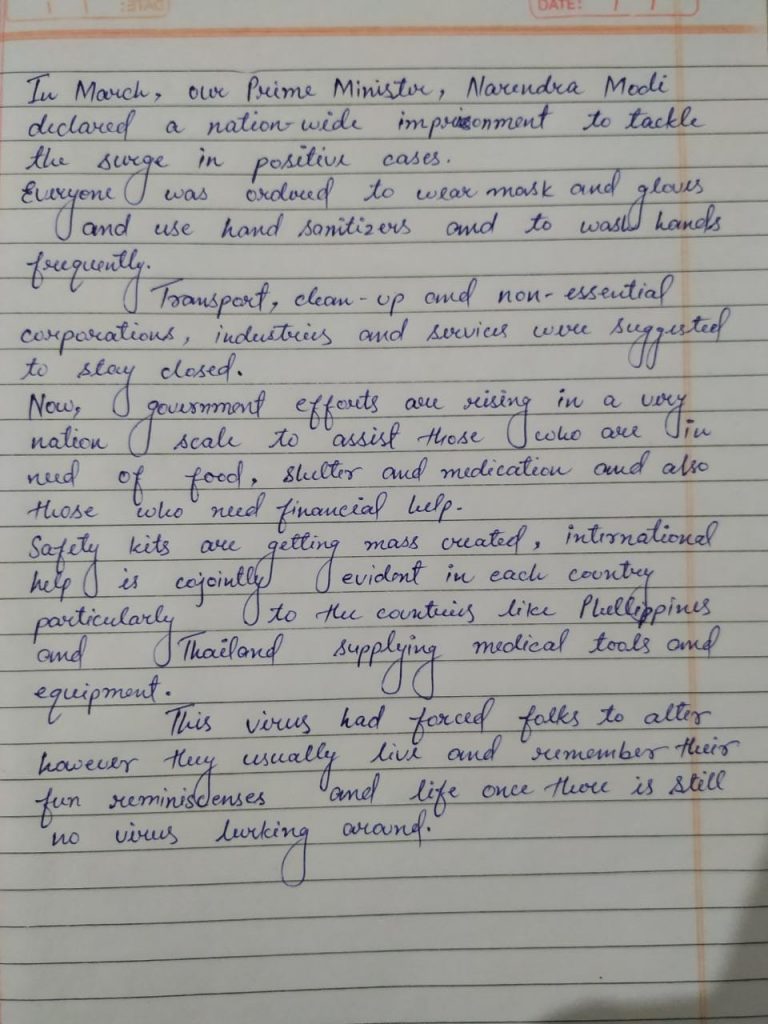 DATE:
In March, our Prime Minister, Narendra Modi
declared a nation-wide imprisonment to tackle
the surge in positive cases.
Everyone was ordered to wear mask and gloves
and use hand sanitizers and to wash hands
frequently.
Transport, clean-up and non-essential
corporations, industries and services were suggested
to stay closed.
Now, government efforts are rising in a very
nation scale to assist those who are in
need of food, shelter and medication and also
those who need financial help.
Safety kits are getting mass created, international
help is cojointly evident in each country
particularly to the countries like Phellippines
and Thailand supplying medical tools and
equipment.
This virus had forced folks to alter
however they usually live and remember their
fun reminisdenses and life once there is still
no virus lurking around.